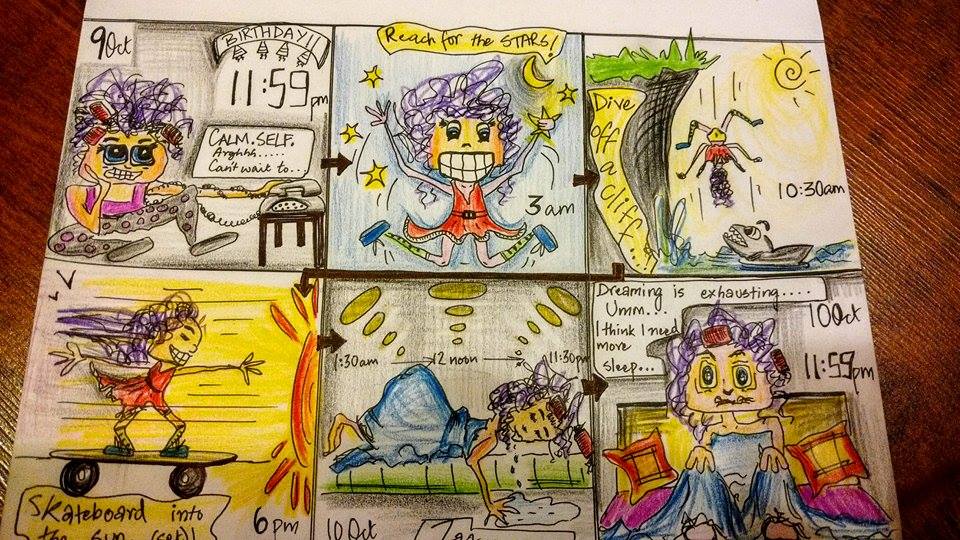 9 Oct
BIRTHDAY!!
11:59 pm
CALM. SELF.
Arghhh.....
Can't wait to...
Reach for the STARS!
3 am
Dive
off
a
cliff
10:30am
Skateboard into
the sun (set)!
6 pm
1:30am
12 noon
11:30pm
10 Oct
Dreaming is exhausting....
Umm...
I think I need
more
sleep...
10 Oct
11:59pm